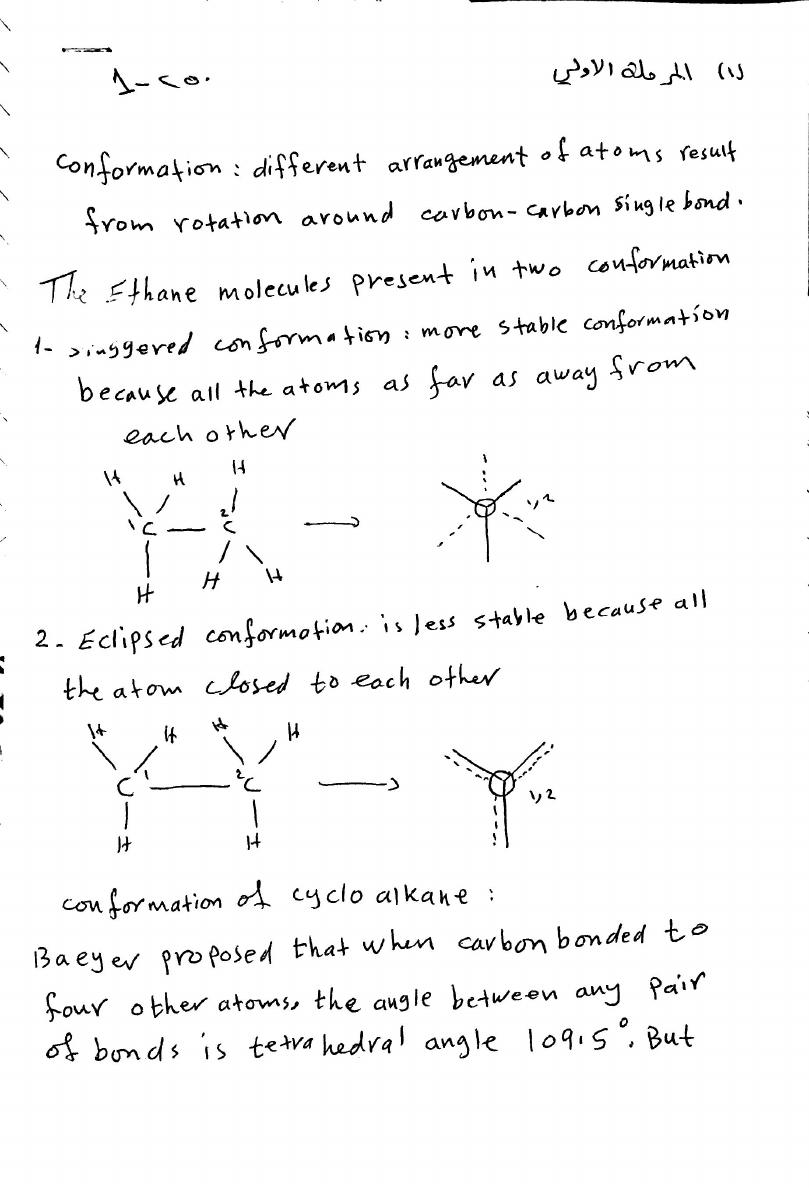 (١) المرحلة الاولى
conformation : different arrangement of atoms result
from rotation around carbon-carbon single bond.
The Ethane molecules present in two conformation
1- conformation : more stable conformation
because all the atoms as far as away from
each other
H H H
1 C — 2 C → 1,2
H H H
2- Eclipsed conformation. is less stable because all
the atom closed to each other
H H H H
C 1 — 2 C → 1,2
H H
conformation of cyclo alkane :
Baeyer proposed that when carbon bonded to
four other atoms, the angle between any pair
of bonds is tetrahedral angle 109.5°. But